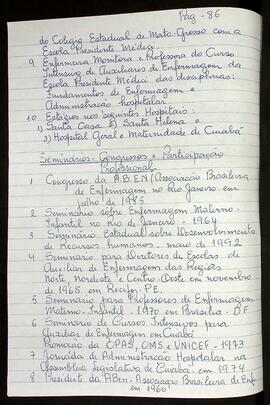 Pag - 86
do Colégio Estadual de Mato Grosso com a
Escola Presidente Médici
9 Enfermeira Monitora e Professora do Curso
Intensivo de Auxiliares de Enfermagem da
Escola Presidente Médici das disciplinas:
Fundamentos de Enfermagem e
Administração hospitalar
10 Estágios nos seguintes Hospitais:
1) Santa Casa 2) Santa Helena e
3) Hospital Geral e Maternidade de Cuiabá
Seminários - Congressos e Participação
Profissional
1 Congresso da A.B.E.N (Associação Brasileira
de Enfermagem no Rio Janeiro em
julho de 1985
2 Seminário sobre Enfermagem Materno-
Infantil no Rio de Janeiro - 1964
3 Seminário Estadual sobre Desenvolvimento
de Recursos humanos - maio de 1992
4 Seminário para Diretores de Escolas de
Auxiliar de Enfermagem das Regiões
Norte Nordeste e Centro-Oeste em novembro
de 1965 em Recife - P.E.
5 Seminário para Professores de Enfermagem
Materno-Infantil - 1970 em Brasília - D.F
6 Seminário de Cursos Intensivos para
Auxiliar de Enfermagem em Cuiabá
Promoção da OPAS, OMS e UNICEF - 1973
7 Jornada de Administração Hospitalar na
Assembléia Legislativa de Cuiabá - em 1974
8 Presidente da ABen - Associação Brasileira de Enf
em 1960